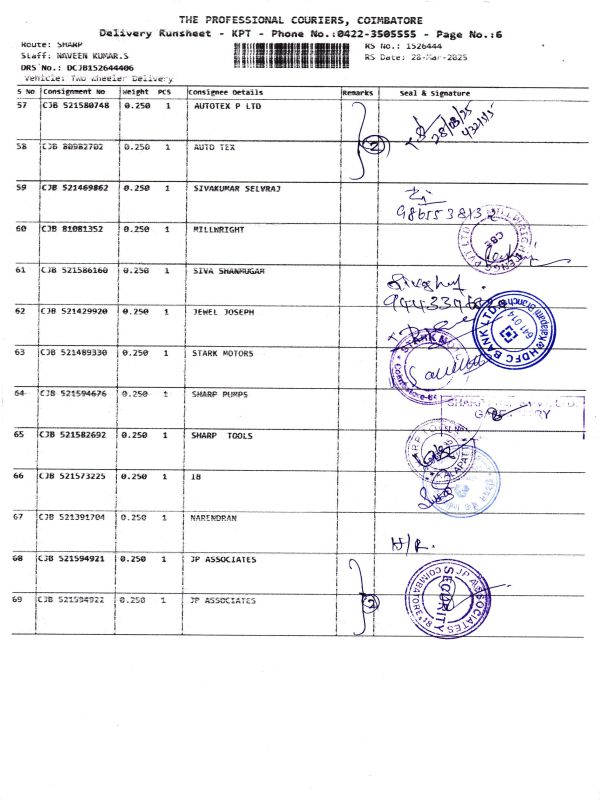 THE PROFESSIONAL COURIERS, COIMBATORE
Delivery Runsheet - KPT - Phone No.:0422-3505555 - Page No.:6
Route: SHARP
RS No.: 1526444
Staff: NAVEEN KUMAR.S
RS Date: 28-Mar-2025
DRS No.: DCJB152644406
Vehicle: Two Wheeler Delivery
S No Consignment No Weight PCS Consignee Details Remarks Seal & Signature
57 CJB 521580748 0.250 1 AUTOTEX P LTD
28/03/25
58 CJB 80982702 0.250 1 AUTO TEX 2
59 CJB 521469862 0.250 1 SIVAKUMAR SELVRAJ
60 CJB 81081352 0.250 1 MILLWRIGHT
CBE
61 CJB 521586160 0.250 1 SIVA SHANMUGAM
62 CJB 521429920 0.250 1 JEWEL JOSEPH
HDFC BANK LTD
641 014
63 CJB 521489330 0.250 1 STARK MOTORS
64 CJB 521594676 0.250 1 SHARP PUMPS
65 CJB 521582692 0.250 1 SHARP TOOLS
66 CJB 521573225 0.250 1 18
67 CJB 521391704 0.250 1 NARENDRAN
N/R.
68 CJB 521594921 0.250 1 JP ASSOCIATES
69 CJB 521594922 0.250 1 JP ASSOCIATES 2
JP ASSOCIATES
SECURITY
COIMBATORE